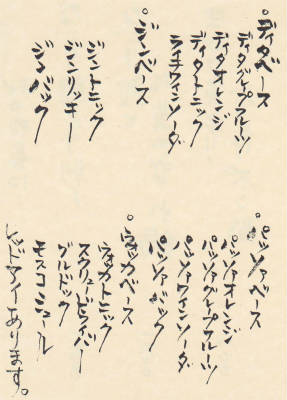 。ディタベース
ディタグレープフルーツ
ディタオレンジ
ディタトニック
ライチワインソーダ
。ジンベース
ジントニック
ジンリッキー
ジンバック
。パッソァベース
パッソァオレンジ
パッソァグレープフルーツ
パッソァワインソーダ
パッソァバック
。ウォッカベース
ウォッカトニック
スクリュードライバー
ブルドック
モスコミュール
レッドアイあります。